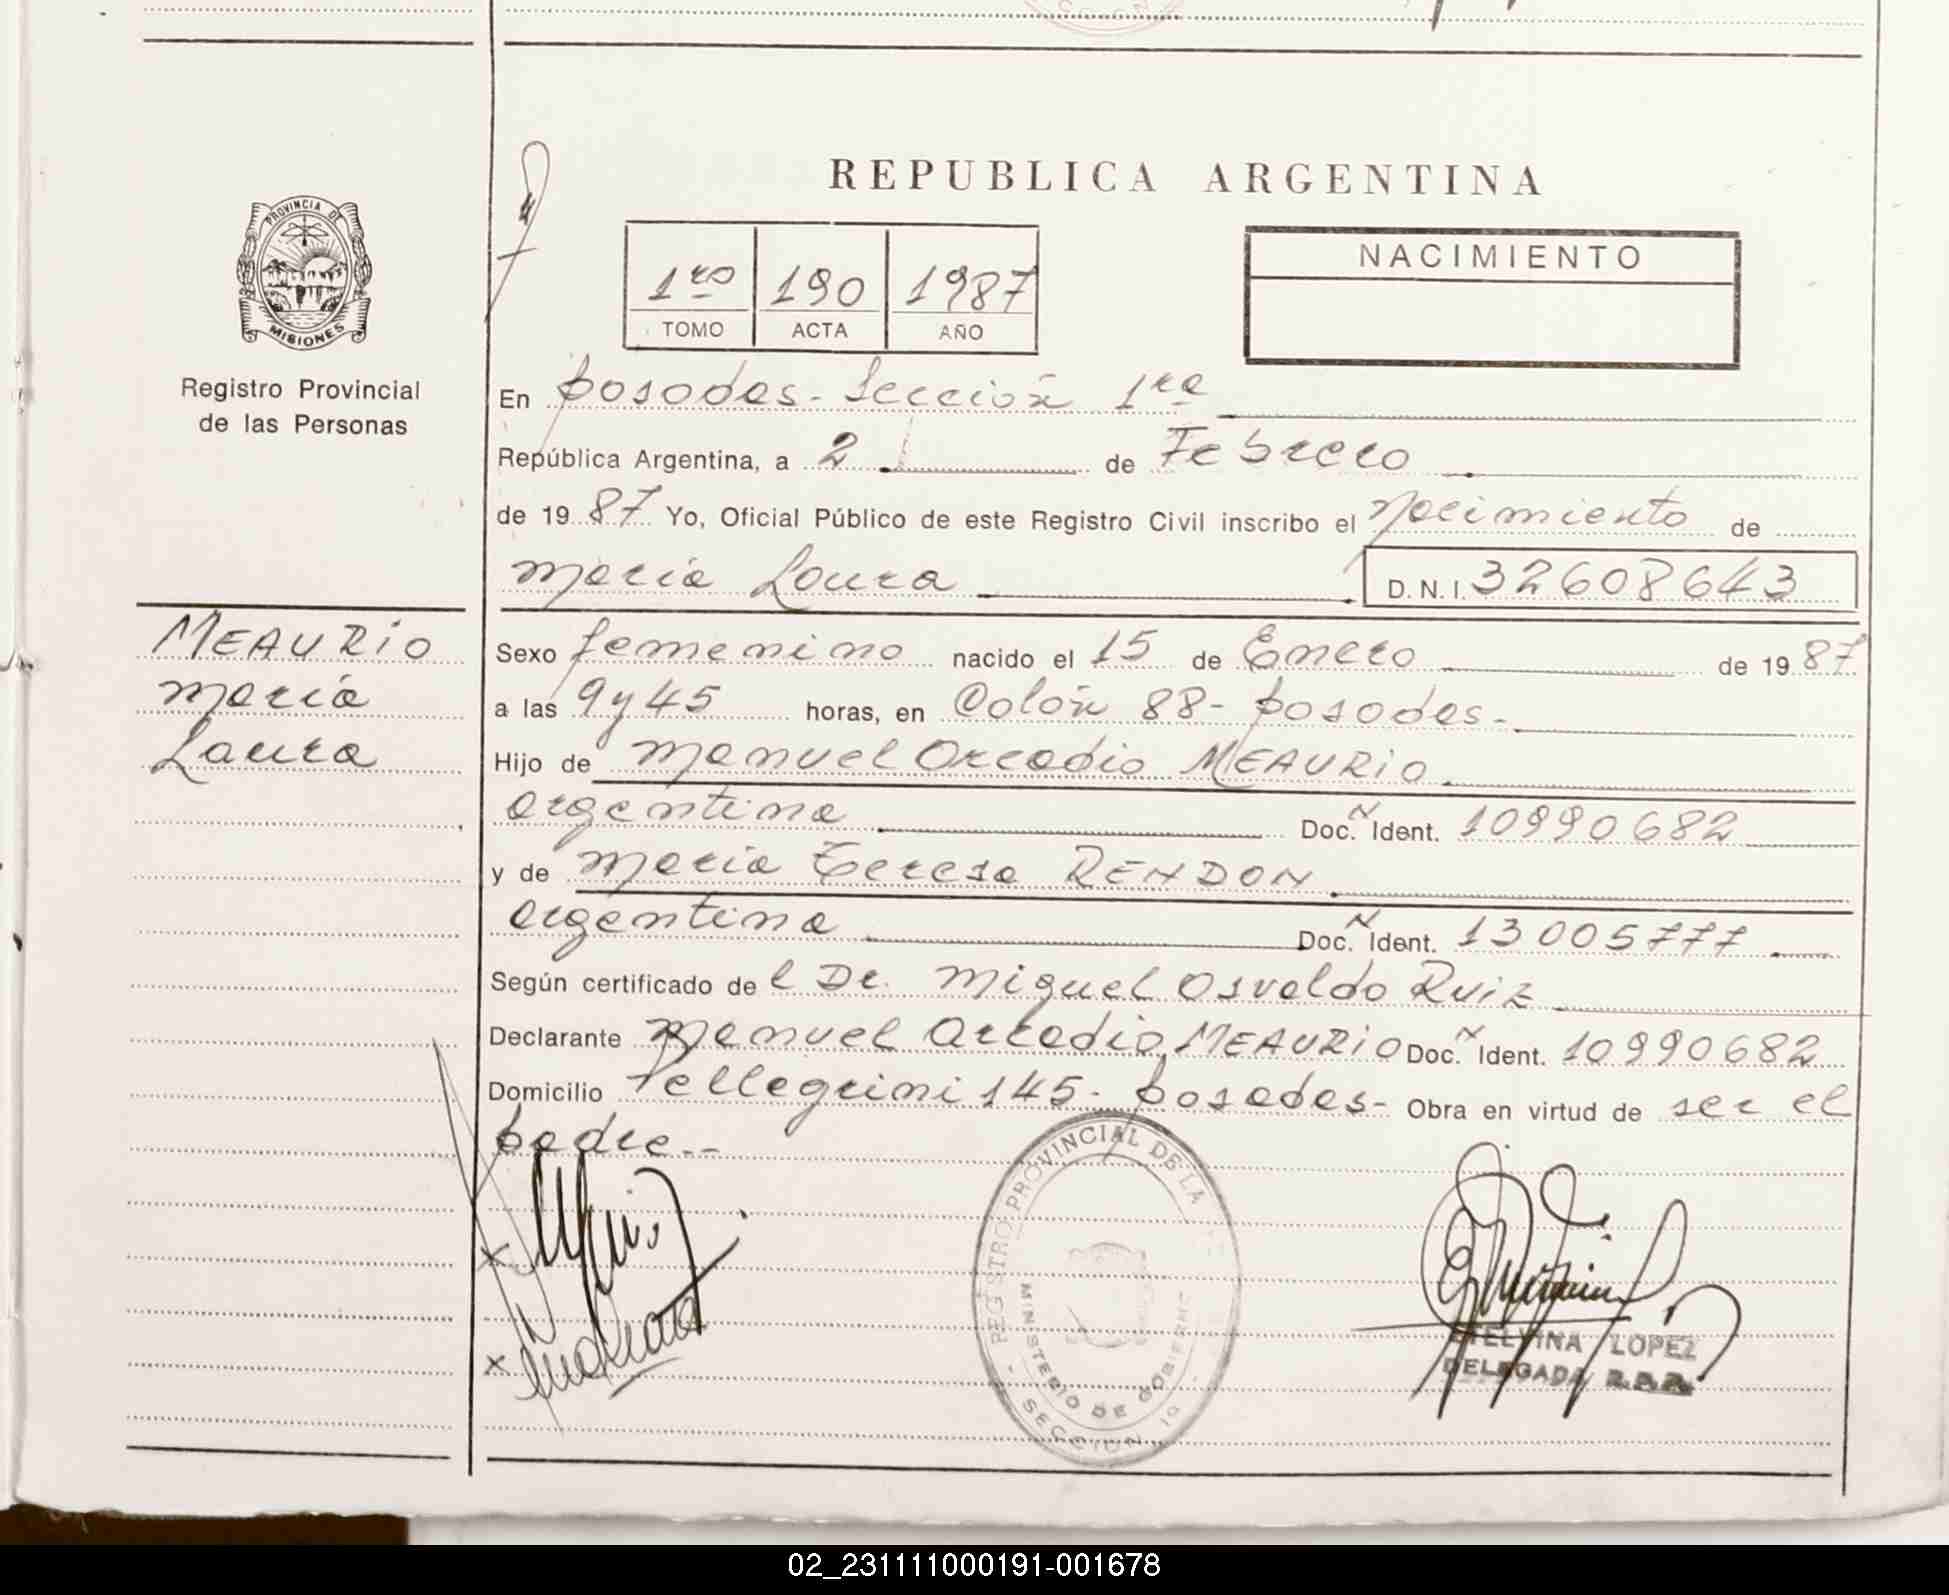 REPUBLICA ARGENTINA
PROVINCIA DE
MISIONES
Registro Provincial
de las Personas
1ro 190 1987
TOMO ACTA AÑO
NACIMIENTO
En Posadas - Sección 1ra
República Argentina, a 2 de Febrero
de 1987 Yo, Oficial Público de este Registro Civil inscribo el Nacimiento de
María Laura D.N.I. 32608643
MEAURIO
María
Laura
Sexo femenino nacido el 15 de Enero de 1987
a las 9 y 45 horas, en Colón 88 - Posadas -
Hijo de Manuel Arcadio MEAURIO
argentina Doc. Ident. 10990682
y de María Teresa RENDON
argentina Doc. Ident. 13005777
Según certificado del Dr. Miguel Osvaldo Ruiz
Declarante Manuel Arcadio MEAURIO Doc. Ident. 10990682
Domicilio Pellegrini 145 - Posadas - Obra en virtud de ser el
padre --
REGISTRO PROVINCIAL DE LA
MINISTERIO DE GOBIERNO
SECCION 1a
ETELVINA LOPEZ
DELEGADA R.P.P.
02_231111000191-001678